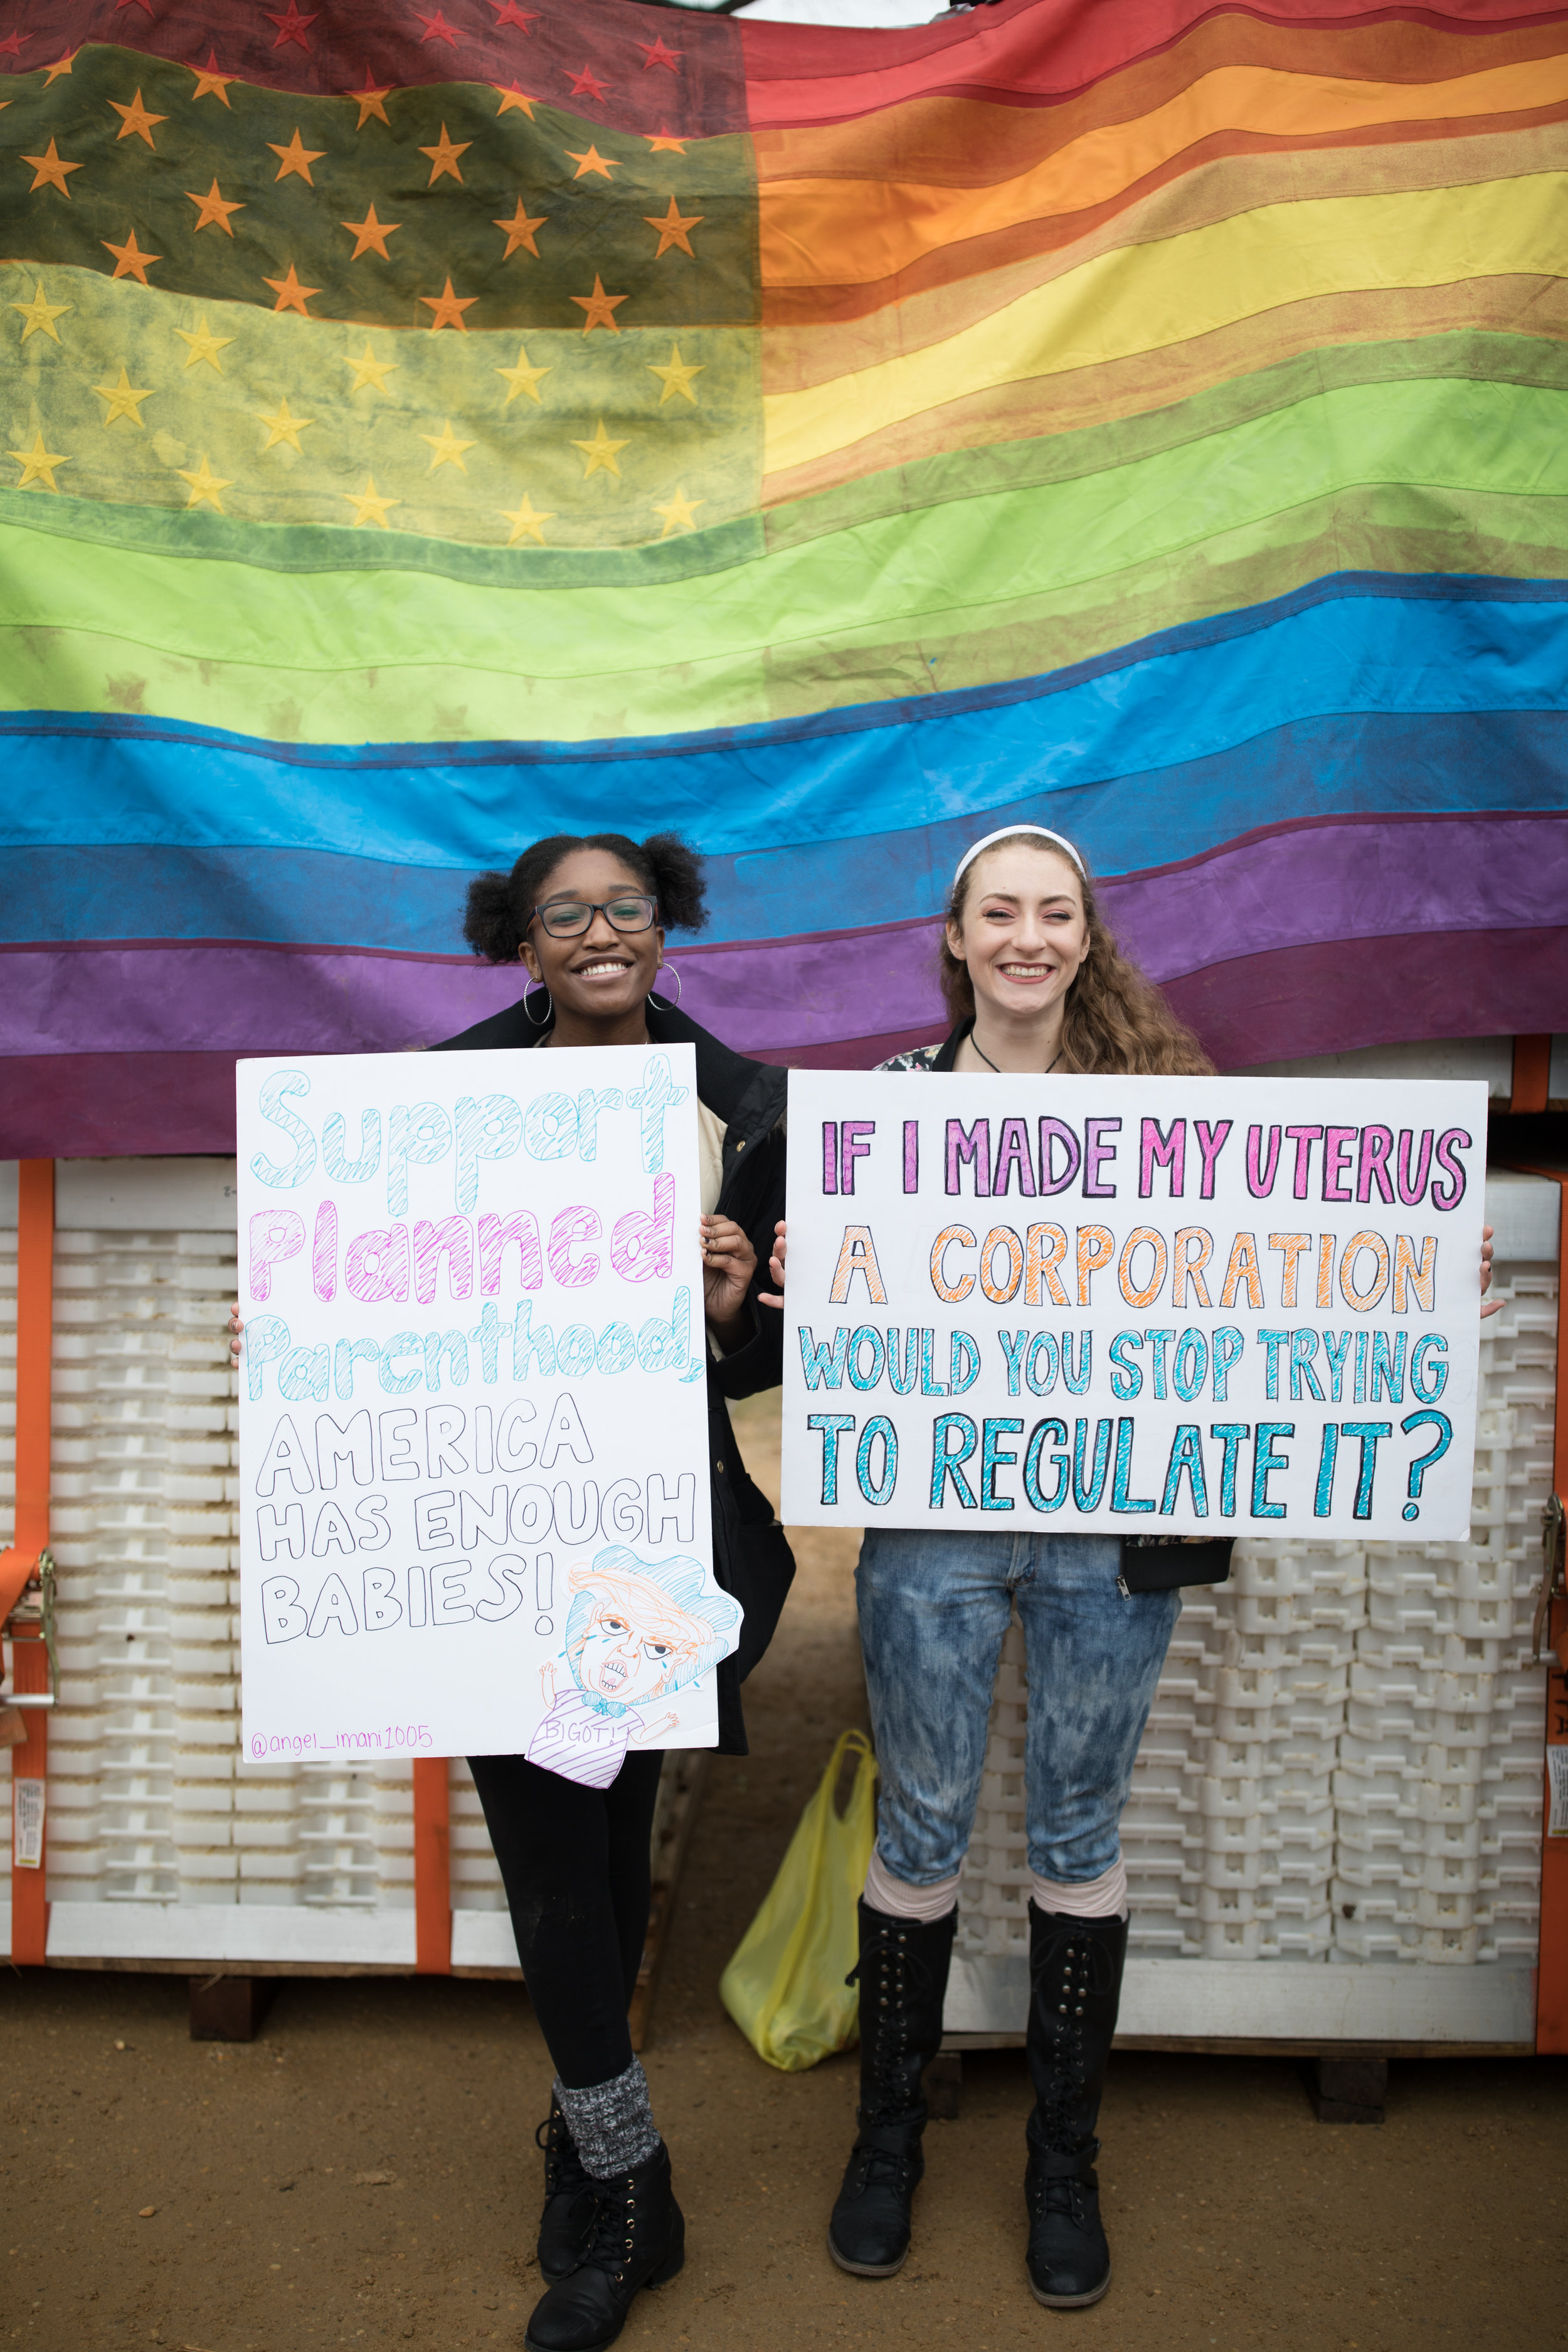 Support
Planned
Parenthood,
AMERICA
HAS ENOUGH
BABIES!
BIGOT!
@angel_imani1005
IF I MADE MY UTERUS
A CORPORATION
WOULD YOU STOP TRYING
TO REGULATE IT?